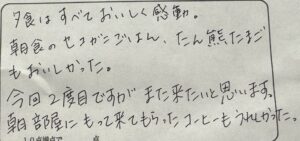 夕食はすべておいしく感動。
朝食のせいろごはん、たん熊たまご
もおいしかった。
今回2度目ですが また来たいと思います。
朝 部屋にもって来てもらったコーヒーもうれしかった。
10点満点で 点